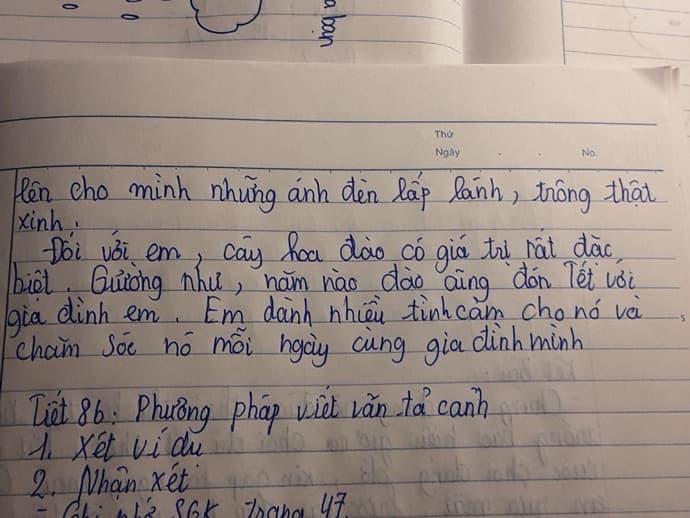 bạn
Thứ
Ngày . . No.
lên cho mình những ánh đèn lấp lánh, trông thật
xinh.
Đối với em, cây hoa đào có giá trị rất đặc
biệt. Gường như, năm nào đào cũng đón Tết với
gia đình em. Em dành nhiều tình cảm cho nó và
chăm sóc nó mỗi ngày cùng gia đình mình
Tiết 86: Phương pháp viết văn tả cảnh
1. Xét ví dụ
2. Nhận xét
- Ghi nhớ SGK trang 47.